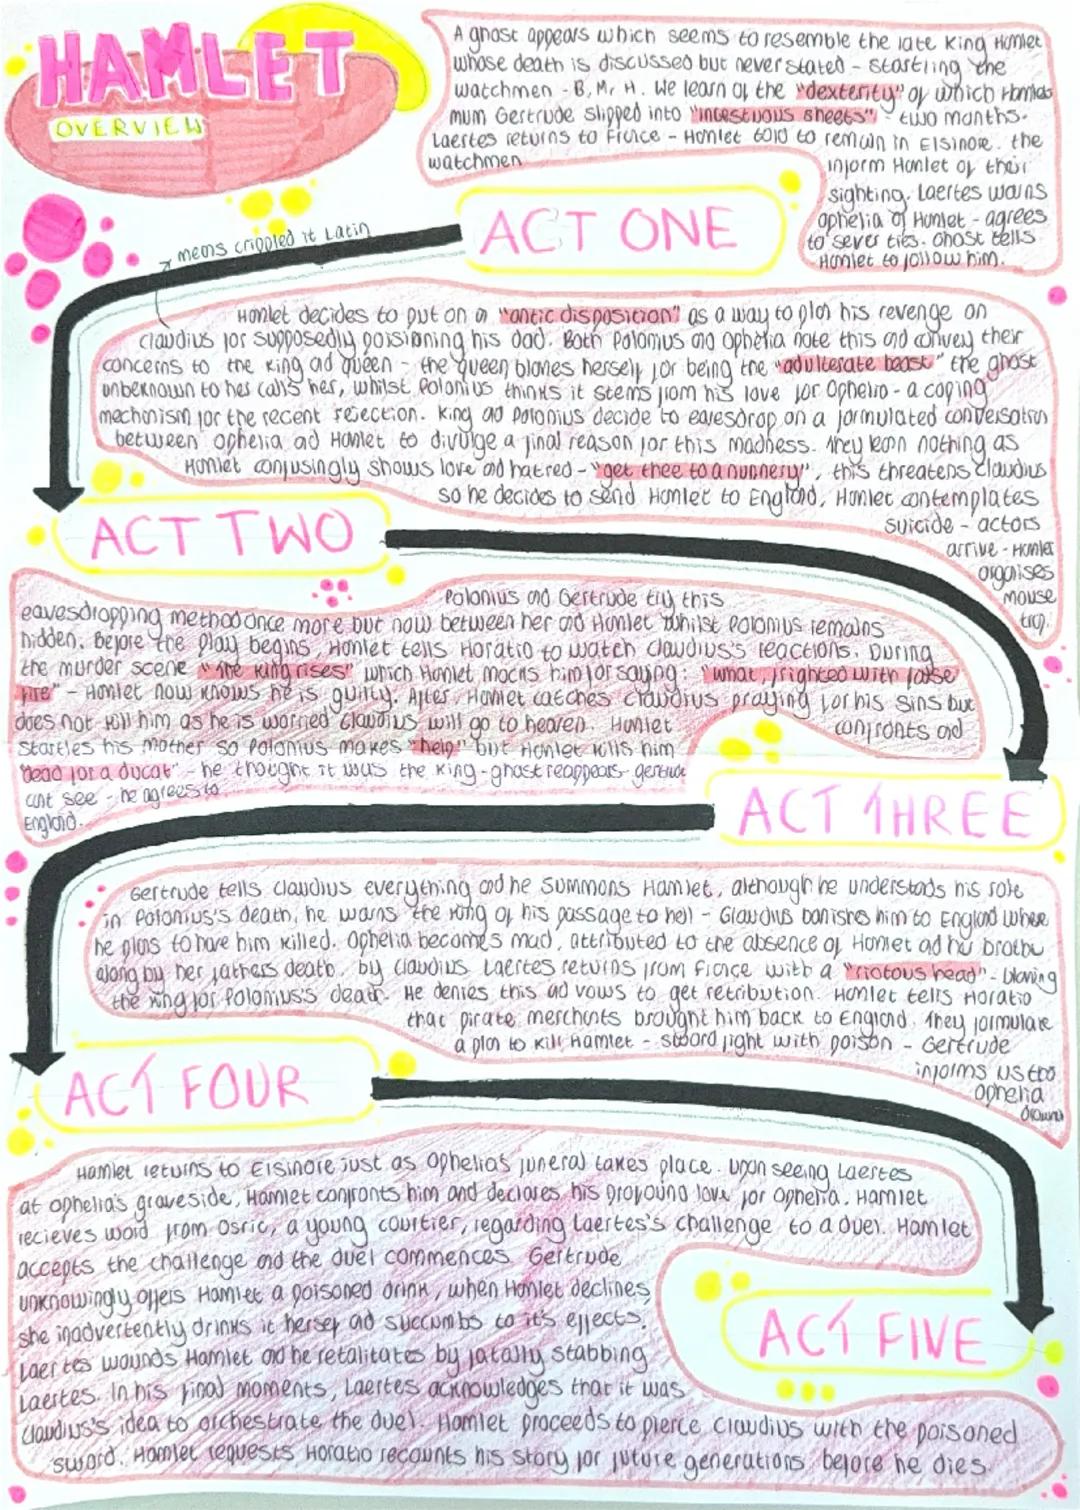 HAMLET
OVERVIEW
A ghost appears which seems to resemble the late King Hamlet
whose death is discussed but never stated - startling the
watchmen - B, M, H. We learn of the "dexterity" of which Hamlets
mum Gertrude slipped into "incestuous sheets" - two months.
Laertes returns to France - Hamlet told to remain in Elsinore. the
watchmen
inform Hamlet of their
sighting. Laertes warns
Ophelia of Hamlet - agrees
to sever ties. Ghost tells
Hamlet to follow him.
ACT ONE
means crippled it Latin
Hamlet decides to put on an "antic disposition" as a way to plan his revenge on
Claudius for supposedly poisioning his dad. Both Polonius and Ophelia note this and convey their
concerns to the king ad queen - the queen blames herself for being the "adulterate beast" the ghost
unbeknown to her calls her, whilst Polonius thinks it stems from his love for Ophelia - a coping
mechnism for the recent rejection. King ad Polonius decide to eavesdrop on a formulated conversation
between Ophelia ad Hamlet to divulge a final reason for this madness. They learn nothing as
Hamlet confusingly shows love ad hatred - "get thee to a nunnery", this threatens Claudius
so he decides to send Hamlet to England, Hamlet contemplates
suicide - actors
arrive - Hamlet
organises
mouse
trap.
ACT TWO
Polonius and Gertrude try this
eavesdropping method once more but now between her and Hamlet whilst Polonius remains
hidden. Before the play begins, Hamlet tells Horatio to watch Claudius's reactions. During
the murder scene "the king rises" which Hamlet mocks him for saying: "what, frighted with false
fire" - Hamlet now knows he is guilty. After, Hamlet catches Claudius praying for his sins but
does not kill him as he is worried Claudius will go to heaven. Hamlet
confronts and
startles his mother so Polonius makes "help!" but Hamlet kills him
"dead for a ducat" - he thought it was the king - ghost reappears - gertrude
cant see - he agrees to
England.
ACT THREE
Gertrude tells Claudius everything and he summons Hamlet, although he understads his role
in Polonius's death, he warns the king of his passage to hell - Claudius banishes him to England where
he plans to have him killed. Ophelia becomes mad, attributed to the absence of Hamlet ad her brother
along by her fathers death, by Claudius. Laertes returns from France with a "riotous head" - blaming
the king for Polonius's death. He denies this ad vows to get retribution. Hamlet tells Horatio
that pirate merchants brought him back to England. They formulate
a plan to kill Hamlet - sword fight with poison - Gertrude
informs us
Ophelia
drowns
ACT FOUR
Hamlet returns to Elsinore just as Ophelia's funeral takes place. Upon seeing Laertes
at Ophelia's graveside, Hamlet confronts him and declares his profound love for Ophelia. Hamlet
recieves word from Osric, a young courtier, regarding Laertes's challenge to a duel. Hamlet
accepts the challenge and the duel commences. Gertrude
unknowingly offers Hamlet a poisoned drink, when Hamlet declines,
she inadvertently drinks it herself ad succumbs to it's effects.
Laertes wounds Hamlet and he retalitates by fatally stabbing
Laertes. In his final moments, Laertes acknowledges that it was
Claudius's idea to orchestrate the duel. Hamlet proceeds to pierce Claudius with the poisoned
sword. Hamlet requests Horatio recounts his story for future generations before he dies.
ACT FIVE